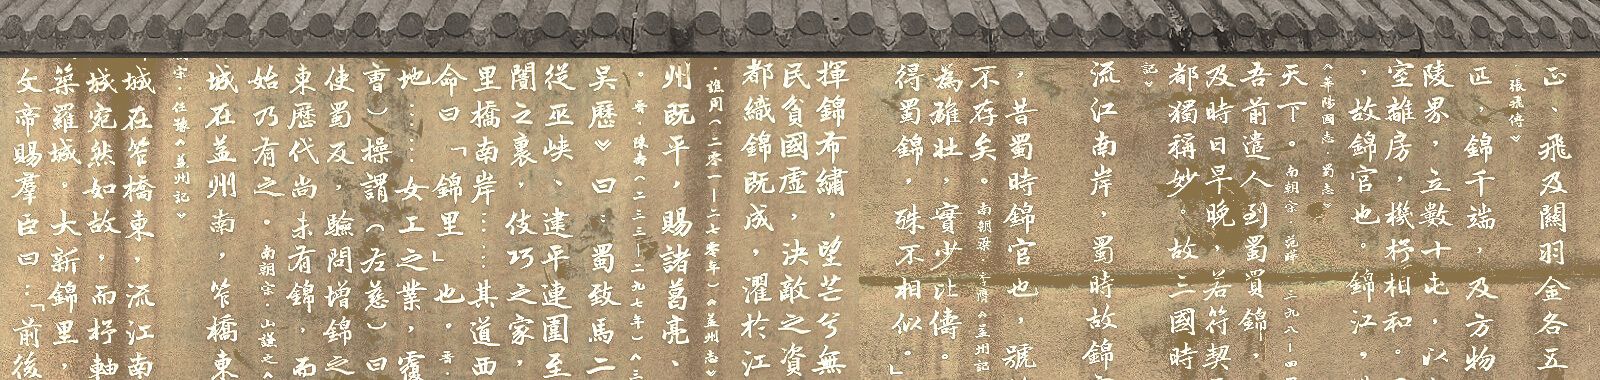 文帝賜羣臣曰：「前後
築羅城。大新錦里，
城宛然如故，而杼軸
城在笮橋東，流江南
宋．任豫《益州記》
城在益州南，笮橋東
始乃有之。南朝宋．山謙之《
東歷代尚未有錦，而
使蜀及，驗問增錦之
曺）操謂（左慈）曰
地……女工之業，覆
命曰「錦里」也。晋．
里橋南岸……其道西
闠之裏，伎巧之家，
從巫峡、建平連圍至
吳歷》曰：蜀致馬二
．晋．陳壽（二三三—二九七年）《三
州既平，賜諸葛亮、
．譙周（二零一—二七零年）《益州志》
都織錦既成，濯於江
民貧國虛，決敵之資
揮錦布繡，望芒兮無
得蜀錦，殊不相似。」
為雄壯，實少比儔。
不存矣。南朝梁．李膺《益州記
，昔蜀時錦官也，號
流江南岸，蜀時故錦
記》
都獨稱妙。故三國時
及時日早晚，若符契
吾前遣人到蜀買錦，
天下。南朝宋．范曄（三九八—四
《華陽國志．蜀志》
，故錦官也。錦江，
室離房，機杼相和。
陵界，立數十屯，以
匹，錦千端，及方物
張飛傳》
正、飛及關羽金各五